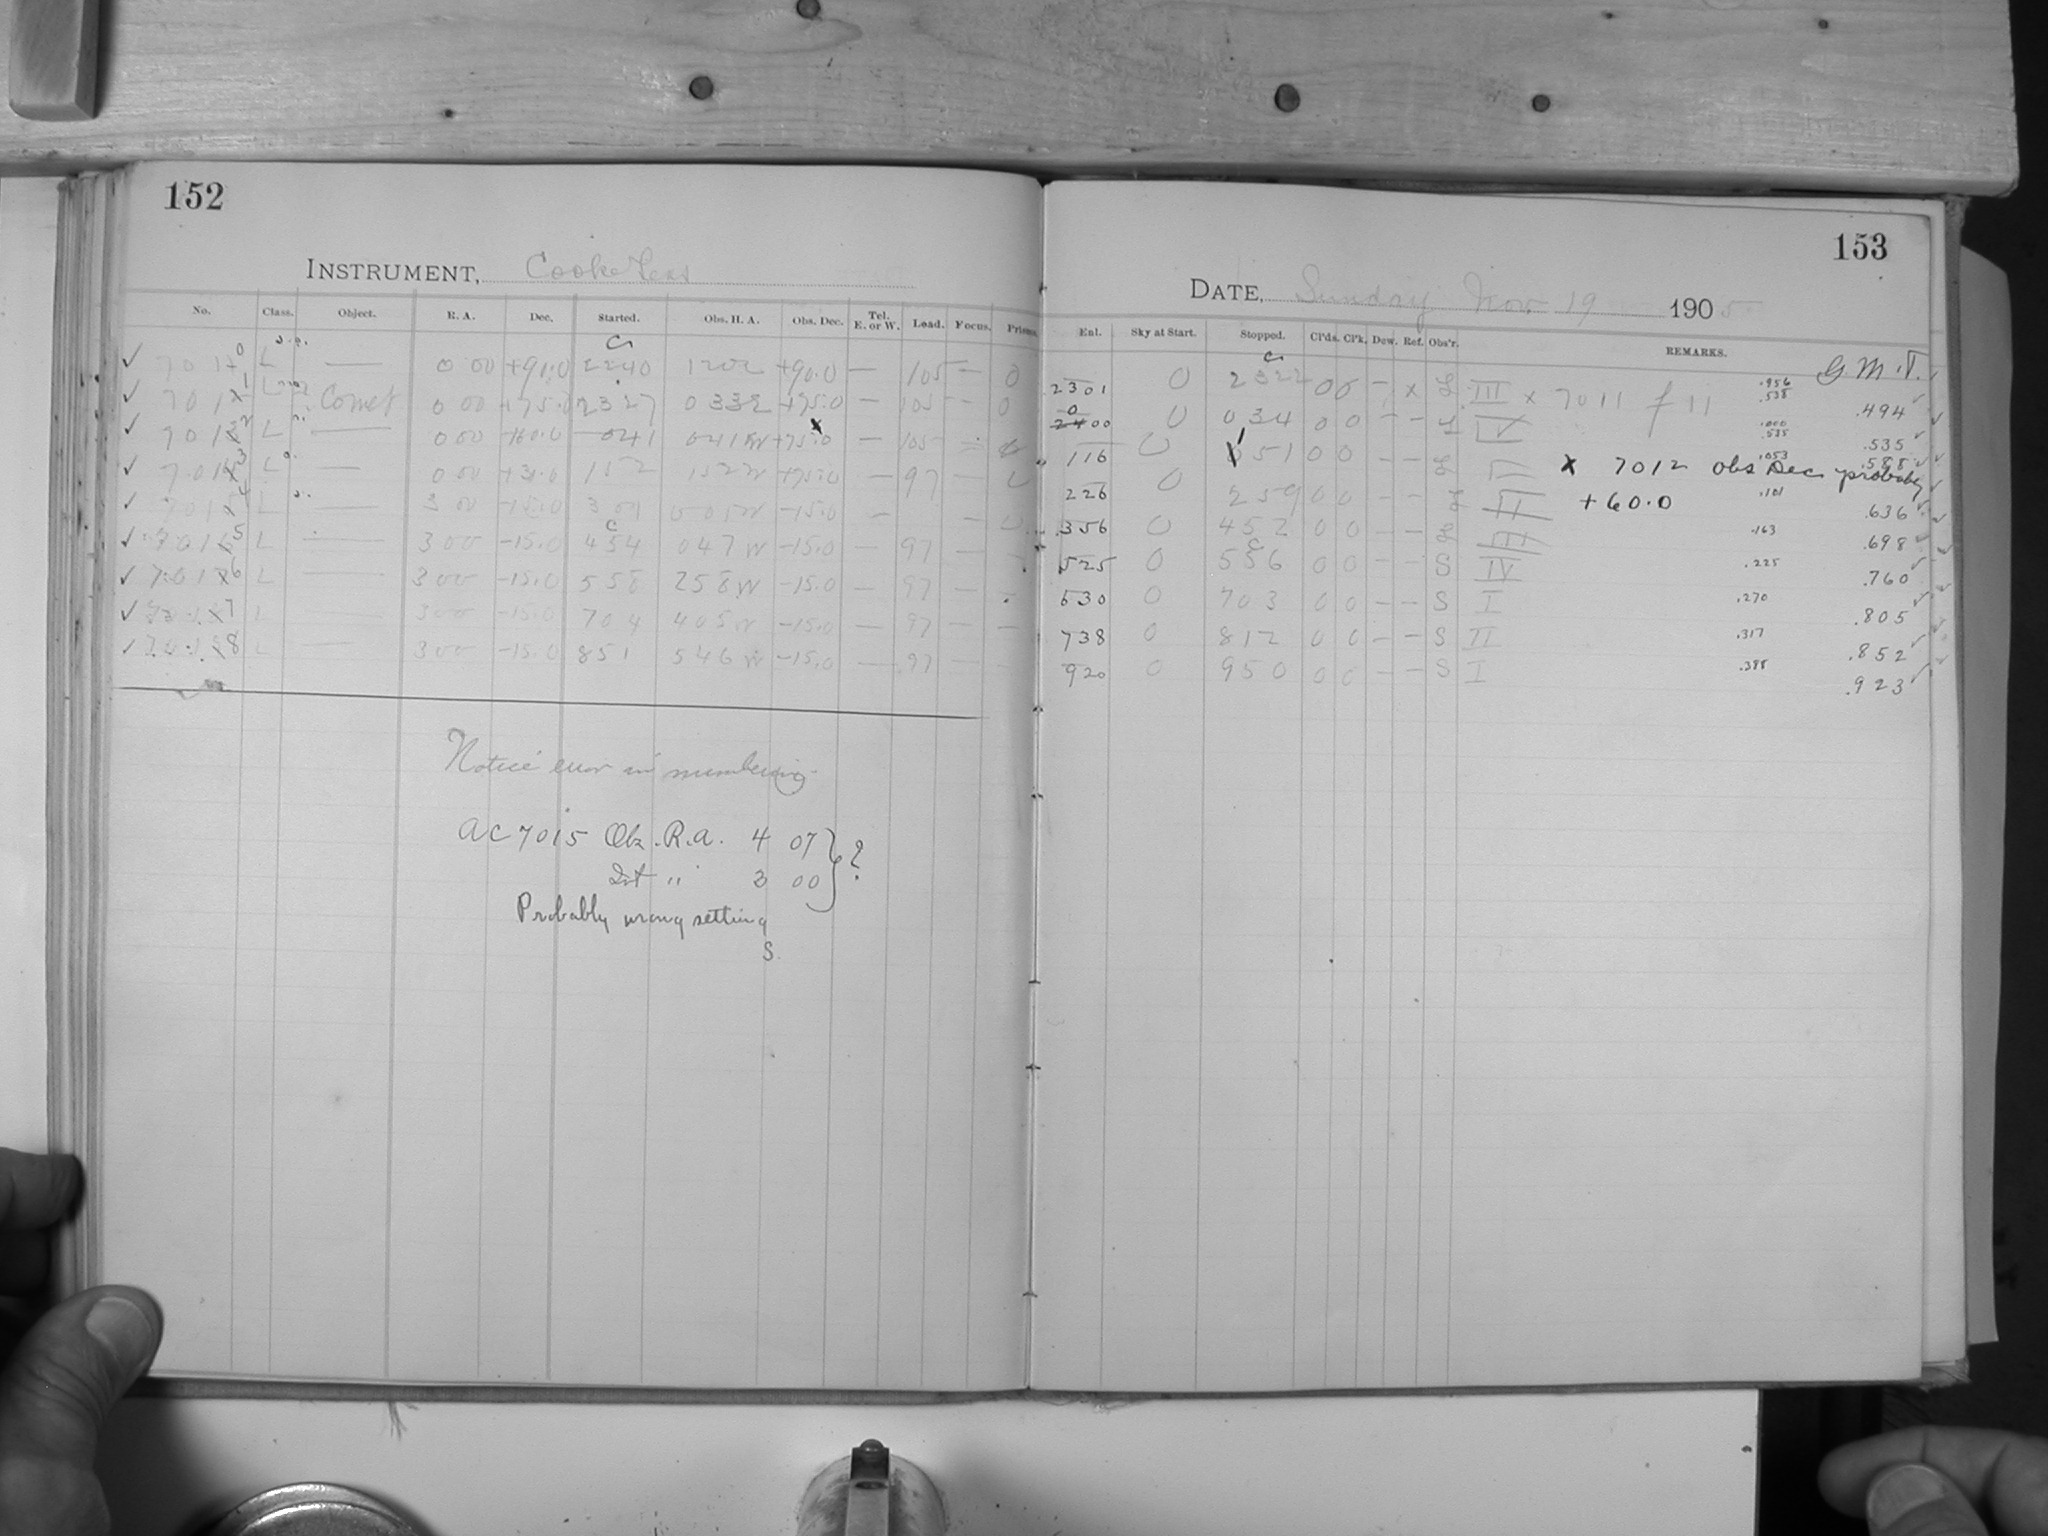 152
INSTRUMENT, Cooke Lens
No. Class. Object. R. A. Dec. Started. Obs. H. A. Obs. Dec. Tel. E. or W. Load. Focus. Prisms.
7010 L — 0 00 +91.0 2240 1202 +90.0 — 105 — 0
7011 L Comet 0 00 +75.0 2327 0 33 E +75.0 — 105 — 0
7012 L — 0 00 +60.0 041 041 W +75.0 x — 105 —
7013 L — 0 00 +31.0 152 152 W — 97 —
7014 L 3 00 -15.0 301 005 W -15.0 — —
7015 L — 3 00 -15.0 454 047 W -15.0 — 97 — —
7016 L — 3 00 -15.0 558 258 W -15.0 — 97 — —
7017 L — 3 00 -15.0 704 405 W -15.0 — 97 — —
7018 L — 3 00 -15.0 851 546 W -15.0 — 97 —
Notice error in numbering
AC 7015 Obs. R.A. 4 07 } ?
Int " 3 00
Probably wrong setting
S.
153
DATE, Sunday Nov. 19 1905
Enl. Sky at Start. Stopped. Cl'ds. Cl'k. Dew. Ref. Obs'r. REMARKS.
G.M.T.
2301 0 2322 0 0 — x L III x 7011 f 11 .956 .538 .494
2400 0 0 034 0 0 — — L IV .000 .535 .535
116 0 151 0 0 — — L x 7012 obs Dec. probably .053 .588
226 0 259 0 0 — — L II +60.0 .101 .636
356 0 452 0 0 — — L III .163 .698
525 0 556 0 0 — — S IV .225 .760
630 0 703 0 0 — — S I .270 .805
738 0 812 0 0 — — S II .317 .852
920 0 950 0 0 — — S I .388 .923